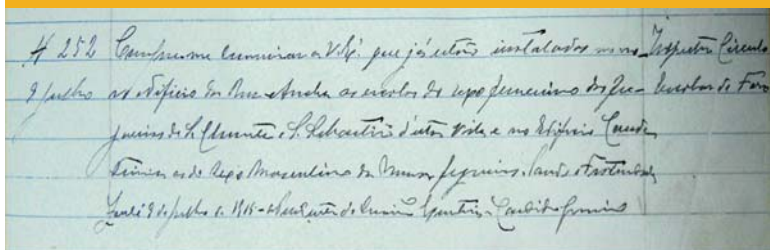 Nº 252 Cumpre-me comunicar a V. Exª. que já estão instaladas no no- Inspector Circulo
9 julho vo edificio da Rua Ancha as escolas do sexo femenino das fre- Escolar de Faro
guesias de S. Clemente e S. Sebastião d'esta Vila e no Edificio Conde
as do sexo masculino da mesma freguesia. Saude e Fraternidade
Loulé 9 de julho de 1915 - o Presidente da Comissão Executiva - Candido